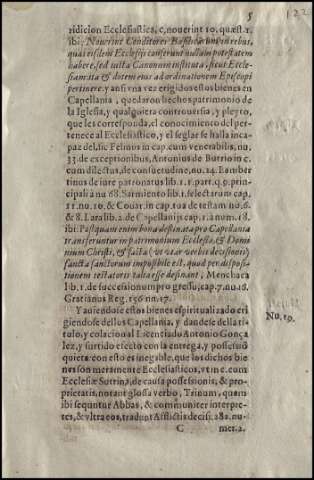 5
122
ridicion Ecclesiastica, c, nouerint 10. quæst. 1.
ibi; Nouerint Conditores Basilicarum in rebus,
quas eisdem Ecclesijs conferunt nullam potestatem
habere, sed iuxta Canonum instituta, sicut Eccle-
siam ita & dotem eius ad ordinationem Episcopi
pertinere. y ansi vna vez erigidos estos bienes en
Capellania, quedaron hechos patrimonio de
la Iglesia, y qualquiera controuersia, y pleyto,
que les corresponda, el conocimiento del per-
tenece al Ecclesiastico, y el seglar se halla inca-
paz del, sic Felinus in cap. cum venerabilis, nu.
33. de exceptionibus, Antonius de Butrio in c.
cum dilectus, de consuetudine, nu. 24. Lamber
tinus de iure patronatus lib. 1. 1. part. q. 9. princi-
palis á nu 68. Sarmiento lib. 1. selectarum cap.
11. nu. 10. & Couar. in cap. 10a de testam nu. 6.
& 8. Lara lib. 2. de Capellanijs cap. 1 á num. 18.
ibi: Postquam enim bona destinata pro Capellania
transferuntur in patrimonium Ecclesiæ, & Domi
nium Christi, & facta (vt vtar verbis decisionis)
sancta sanctorum impossibile est, quod per disposi-
tionem testatoris talia esse desinant, Menchaca
lib. 1. de successionum progressu, cap. 7. nu. 16.
Gratianus Reg. 150 nu. 17.
Y auiendose estos bienes espiritualizado eri
giendose dellos Capellania, y dandose della ti-
tulo, y colacion al Licenciado Antonio Gonça
lez, y surtido efecto con la entrega, y possessiõ
quieta: con esto es inegable, que los dichos bie-
nes son meramente Ecclesiasticos, vt in c. cum
Ecclesiæ Sutrina, de causa possessionis, & pro-
prietatis, notant glossa verbo, Trinum, quem
ibi sequuntur Abbas, & communiter interpre-
tes, & vltra eos, tradunt Afflictis decis. 282. nu-
Nu. 19.
C
mer. 2.